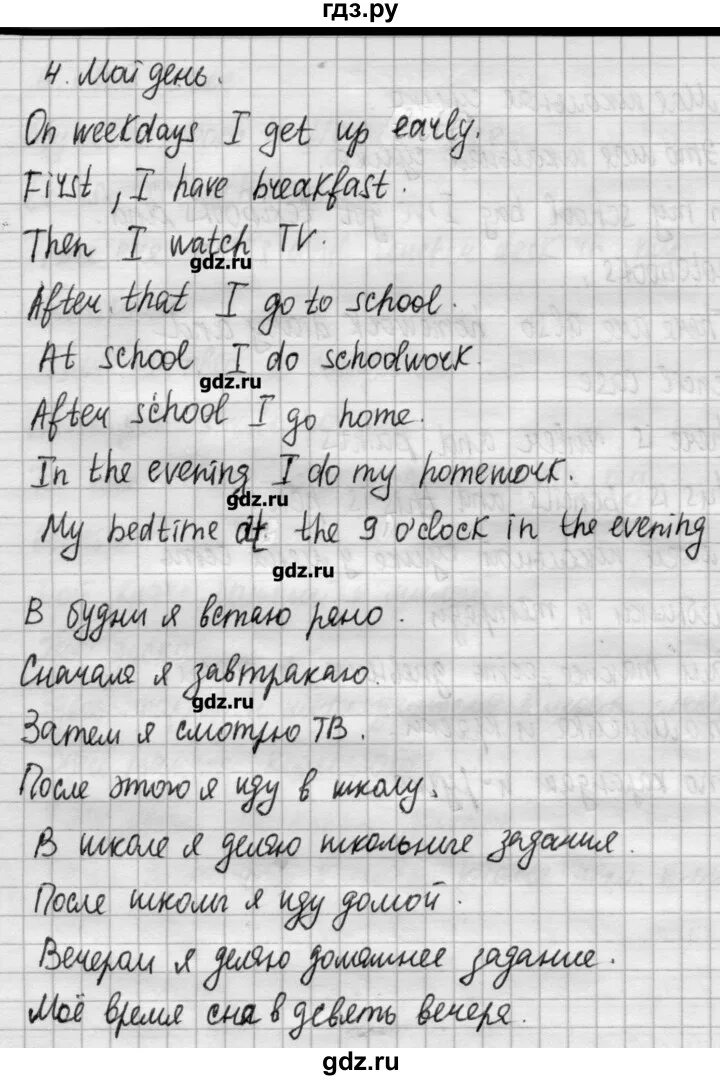 гдз.ру
4. Мой день.
On weekdays I get up early.
First, I have breakfast.
Then I watch TV.
gdz.ru
After that I go to school.
At school I do schoolwork.
gdz.ru
After school I go home.
In the evening I do my homework.
gdz.ru
My bedtime at the 9 o'clock in the evening
gdz.ru
В будни я встаю рано.
Сначала я завтракаю.
gdz.ru
Затем я смотрю ТВ.
После этого я иду в школу.
В школе я делаю школьные задания.
После школы я иду домой.
Вечерам я делаю домашнее задание.
Моё время сна в девять вечера.
gdz.ru